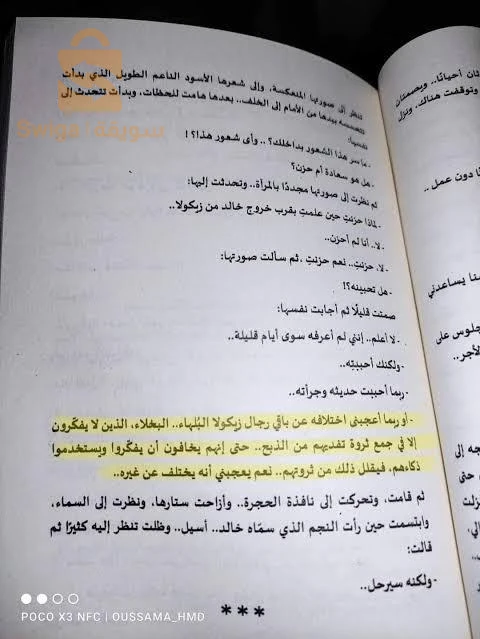 تنظر إلى صورتها المنعكسة، وإلى شعرها الأسود الناعم الطويل الذي بدأت
تتحسسه بيدها من الأمام إلى الخلف.. بعدها هامت للحظات، وبدأت تتحدث إلى
نفسها:
- ما سر هذا الشعور بداخلك؟.. وأى شعور هذا؟!
- هل هو سعادة أم حزن؟
ثم نظرت إلى صورتها مجددًا بالمرآة.. وتحدثت إليها:
- لماذا حزنتِ حين علمتِ بقرب خروج خالد من زيكولا..
- لا.. أنا لم أحزن..
- لا، حزنتِ.. نعم حزنتِ ، ثم سألت صورتها:
- هل تحبينه؟!
صمتت قليلًا ثم أجابت نفسها:
- لا أعلم.. إنني لم أعرفه سوى أيام قليلة..
- ولكنك أحببتِه..
- ربما أحببت حديثه وجرأته..
- أو ربما أعجبنى اختلافه عن باقي رجال زيكولا البُلهاء.. البخلاء، الذين لا يفكّرون
إلا في جمع ثروة تفديهم من الذبح.. حتى إنهم يخافون أن يفكّروا ويستخدموا
ذكاءهم، فيقلل ذلك من ثروتهم.. نعم يعجبني أنه يختلف عن غيره..
ثم قامت، وتحركت إلى نافذة الحجرة.. وأزاحت ستارها، ونظرت إلى السماء،
وابتسمت حين رأت النجم الذي سمّاه خالد.. أسيل.. وظلت تنظر إليه كثيرًا ثم
قالت:
- ولكنه سيرحل..
***
ثان أحيانًا.. ويصمتان
وتوقفت هناك، ونزل
ا دون عمل ..
نا يساعدني
جلوس على
لأجر..
جه إلى
حتى
زلت
الي،
سويقة
POCO X3 NFC | OUSSAMA_HMD